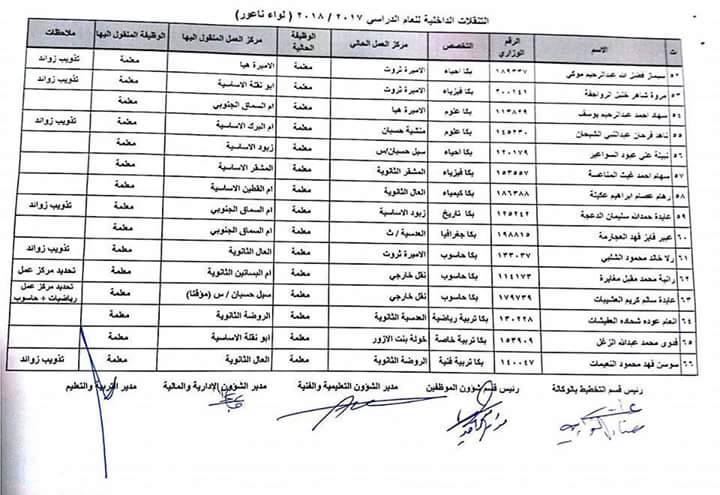 التنقلات الداخلية للعام الدراسي ٢٠١٧ / ٢٠١٨ ( لواء ناعور)
ت الاسم الرقم الوزاري التخصص مركز العمل الحالي الوظيفة الحالية مركز العمل المنقول اليها الوظيفة المنقول اليها ملاحظات
٥٢ فضل الله عبدالرحيم ١٨٩٣٣٧ بكا احياء الاميرة ثروت معلمة الاميرة هيا معلمة تذويب زوائد
٥٣ مروة شاهر الرواجفة ٢٠٠١٤١ بكا فيزياء الاميرة ثروت معلمة ابو نقلة الاساسية معلمة تذويب زوائد
٥٤ سهاد احمد عبدالرحيم يوسف ١١٣٨٢٩ بكا علوم الاميرة هيا معلمة ام السماق الجنوبي معلمة
٥٥ ناهد فرحان عبدالنبي الشيحان ١٤٥٢٣٠ بكا علوم منشية حسبان معلمة ام البرك الاساسية معلمة تذويب زوائد
٥٦ علي عبود السواعير ١٢٠١٧٩ بكا احياء سيل حسبان/س معلمة زبود الاساسية معلمة
٥٧ سهام احمد غيث المناعسة ١٥٣٥٥٧ بكا فيزياء المشقر الثانوية معلمة المشقر الاساسية معلمة
٥٨ رهام عصام ابراهيم ١٨٦٣٨٨ بكا كيمياء العال الثانوية معلمة ام القطين الاساسية معلمة
٥٩ عايدة حمدالله سليمان الدعجة ١٢٥٢٤٢ بكا تاريخ زبود الاساسية معلمة ام السماق الجنوبي معلمة تذويب زوائد
٦٠ عبير فايز فهد العجارمة ١٩٨٨١٥ بكا جغرافيا العدسية / ث معلمة ام السماق الجنوبي معلمة
٦١ رلا خالد محمود الشلبي ١٣٣٠٣٧ بكا حاسوب الاميرة ثروت معلمة العال الثانوية معلمة تذويب زوائد
٦٢ رانية محمد مقبل مغايرة ١١٤١٧٣ بكا حاسوب نقل خارجي معلمة ام البساتين الثانوية معلمة تحديد مركز عمل
٦٣ عايدة سالم كريم العشيبات ١٧٩٧٣٩ بكا حاسوب نقل خارجي معلمة سيل حسبان / س (مؤقتا) معلمة تحديد مركز عمل رياضيات + حاسوب
٦٤ انعام عوده شحاده العطيشات ١٣٠٢٢٨ بكا تربية رياضية العدسية الثانوية معلمة الروضة الثانوية معلمة
٦٥ فدوى محمد عبدالله الزغل ١٥٣٩٠٩ بكا تربية خاصة خولة بنت الازور معلمة ابو نقلة الاساسية معلمة
٦٦ سوسن فهد محمود النعيمات ١٤٠٠٤٧ بكا تربية فنية الروضة الثانوية معلمة العال الثانوية معلمة تذويب زوائد
رئيس قسم التخطيط بالوكالة رئيس قسم شؤون الموظفين مدير الشؤون التعليمية والفنية مدير الشؤون الإدارية والمالية مدير التربية والتعليم